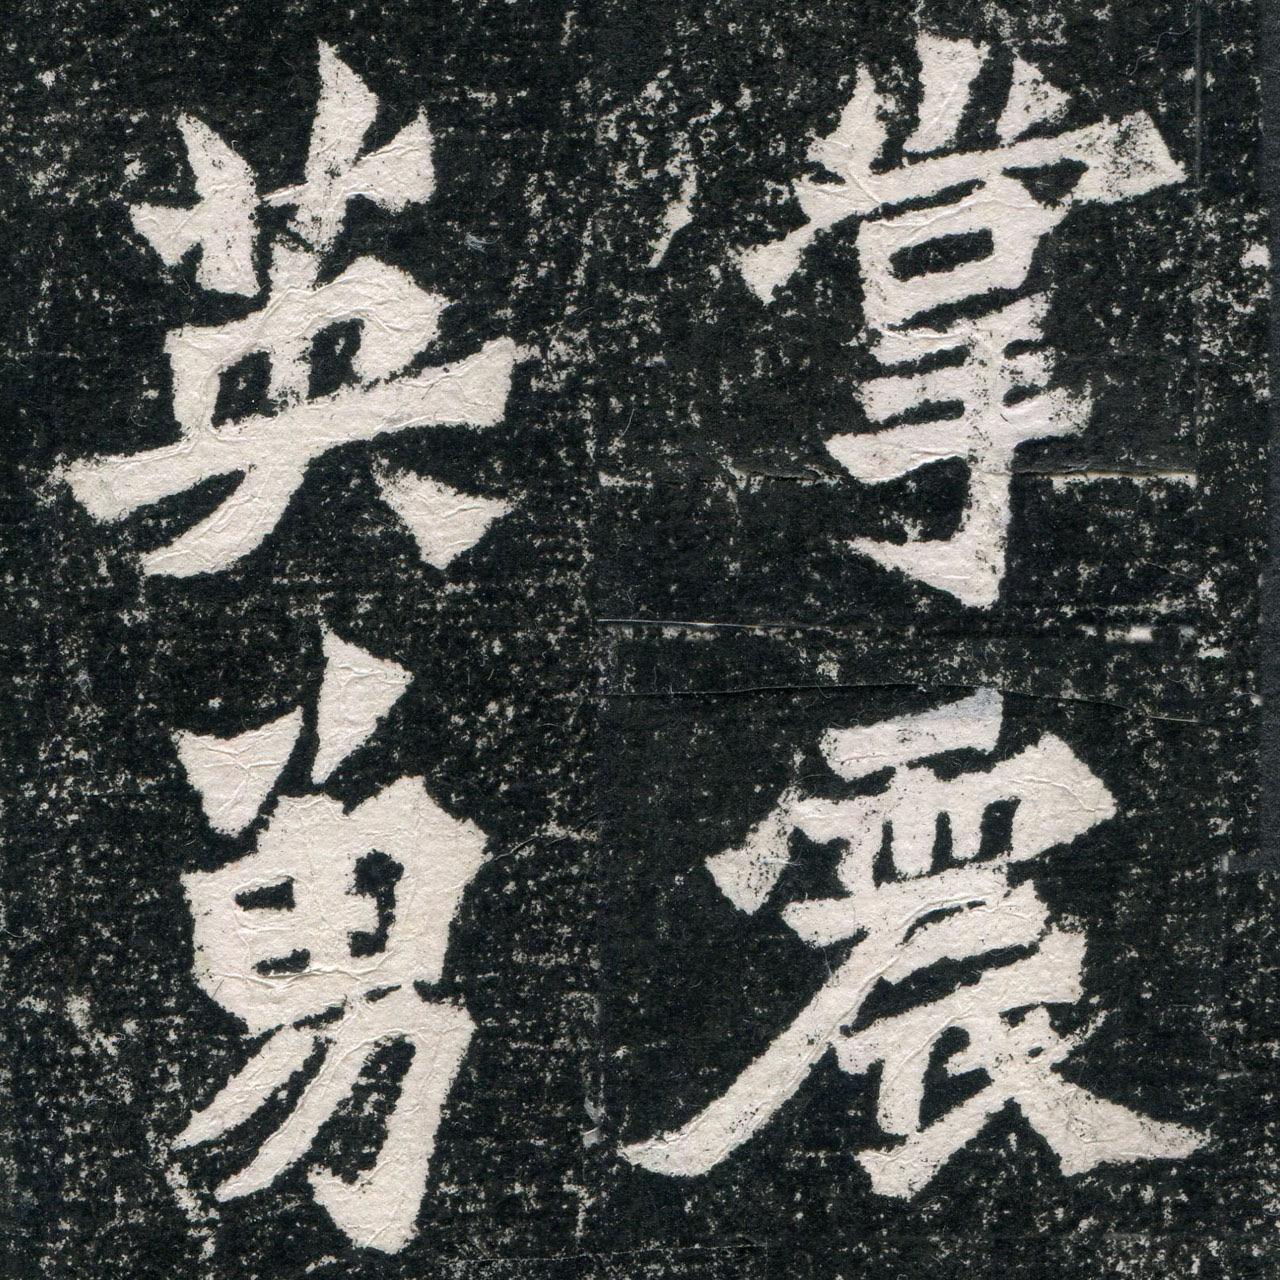 掌震
英勇